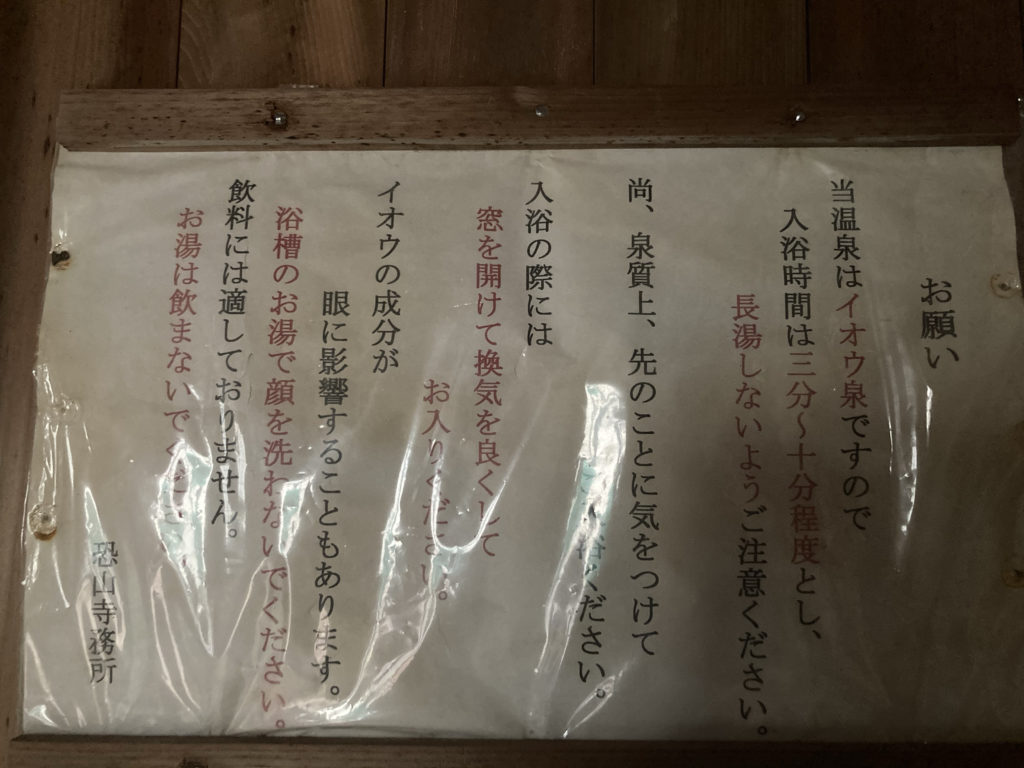 お願い
当温泉はイオウ泉ですので
入浴時間は三分～十分程度とし、
長湯しないようご注意ください。
尚、泉質上、先のことに気をつけて
浴ください。
入浴の際には
窓を開けて換気を良くして
お入りください。
イオウの成分が
眼に影響することもあります。
浴槽のお湯で顔を洗わないでください。
飲料には適しておりません。
お湯は飲まないでくださ
恐山寺務所